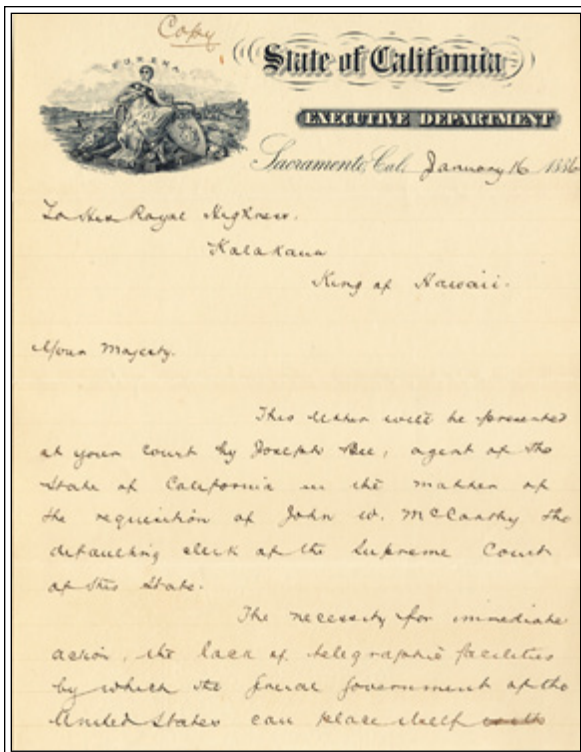 Copy
EUREKA
State of California
EXECUTIVE DEPARTMENT
Sacramento, Cal. January 16 1886
To His Royal Highness.
Kalakaua
King of Hawaii.
Your Majesty.
This letter will be presented
at your court by Joseph Bee, agent of the
State of California in the matter of
the requisition of John W. McCarthy the
defaulting clerk of the Supreme Court
of this State.
The necessity for immediate
action, the lack of telegraphic facilities
by which the general government of the
United States can place itself